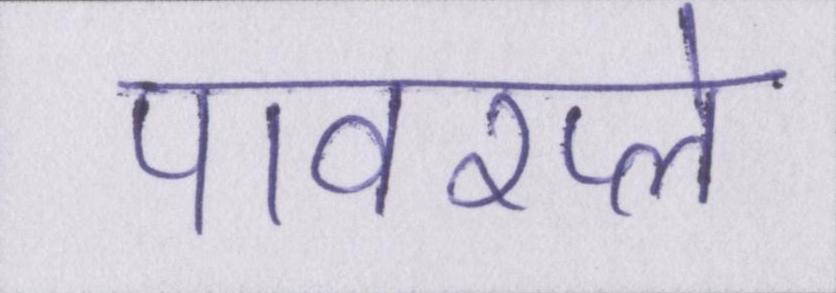 पावरप्ले